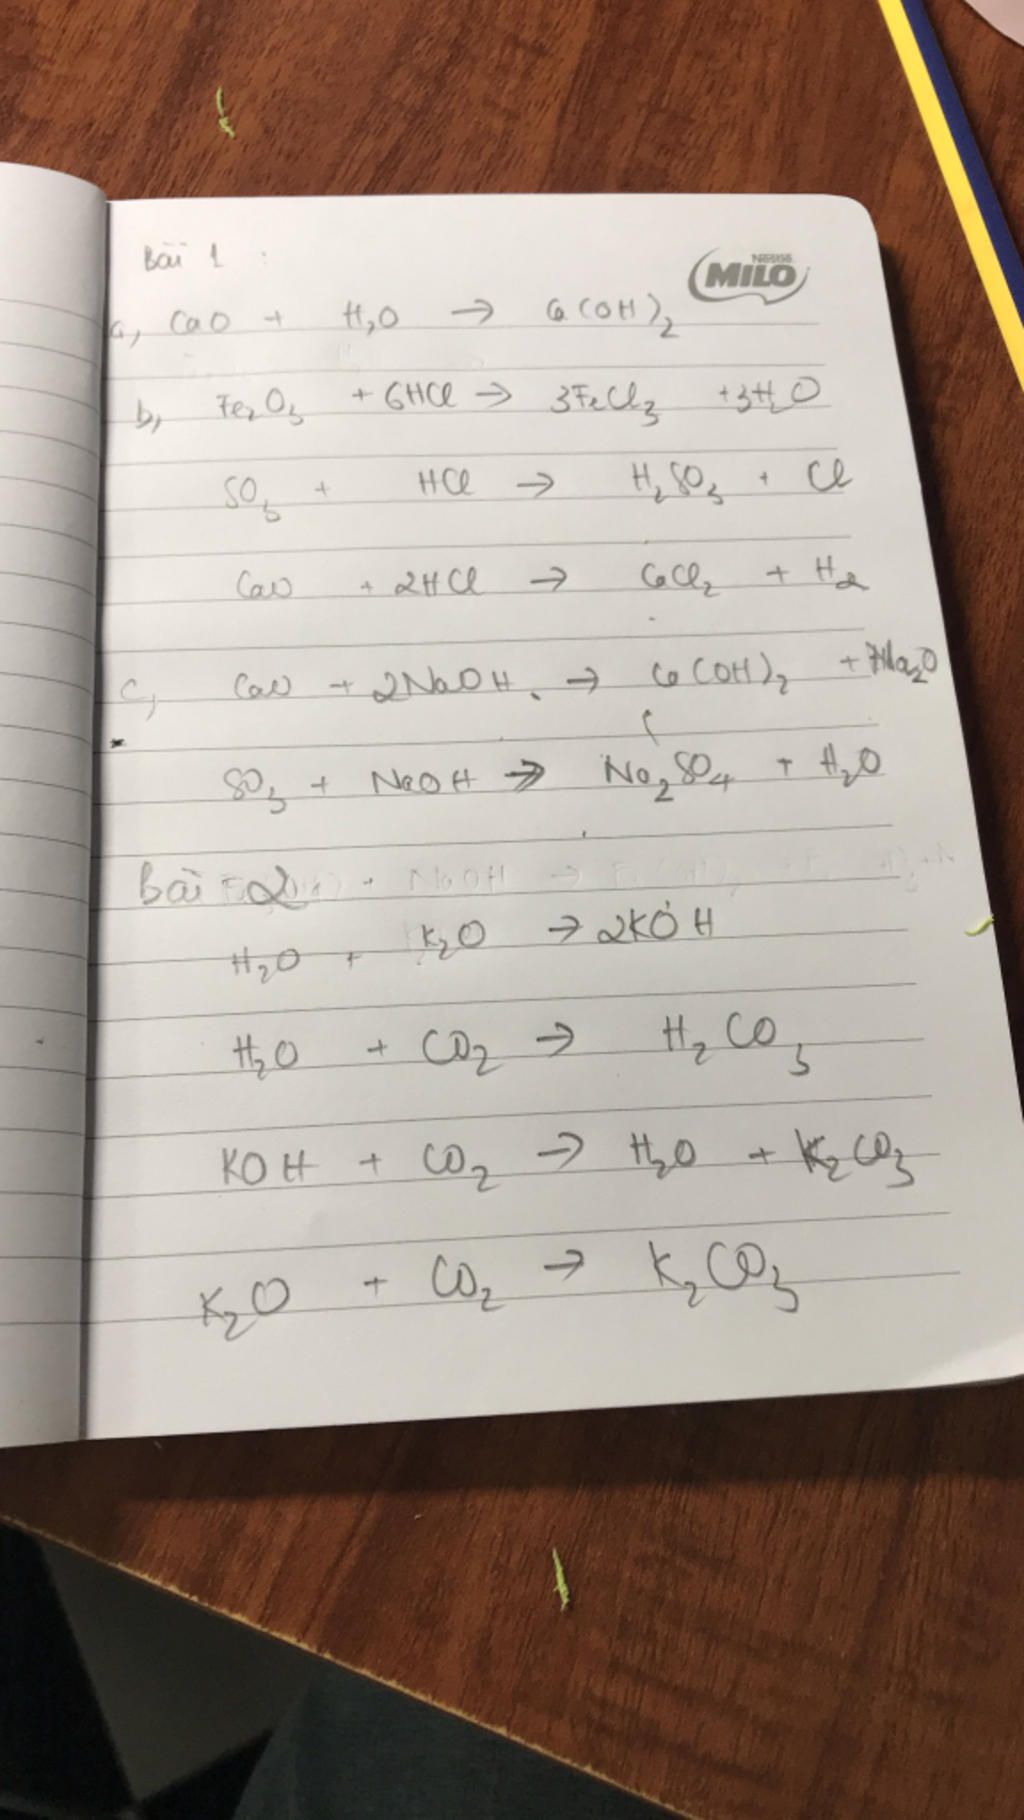 Bài 1 :
NESTLÉ
MILO
a, CaO + H₂O → Ca(OH)₂
b, Fe₂O₃ + 6HCl → 3FeCl₃ + 3H₂O
SO₃ + HCl → H₂SO₃ + Cl
CaO + 2HCl → CaCl₂ + H₂
c, CaO + 2NaOH → Ca(OH)₂ + Na₂O
SO₃ + NaOH → Na₂SO₄ + H₂O
Bài 2
H₂O + K₂O → 2KOH
H₂O + CO₂ → H₂CO₃
KOH + CO₂ → H₂O + K₂CO₃
K₂O + CO₂ → K₂CO₃